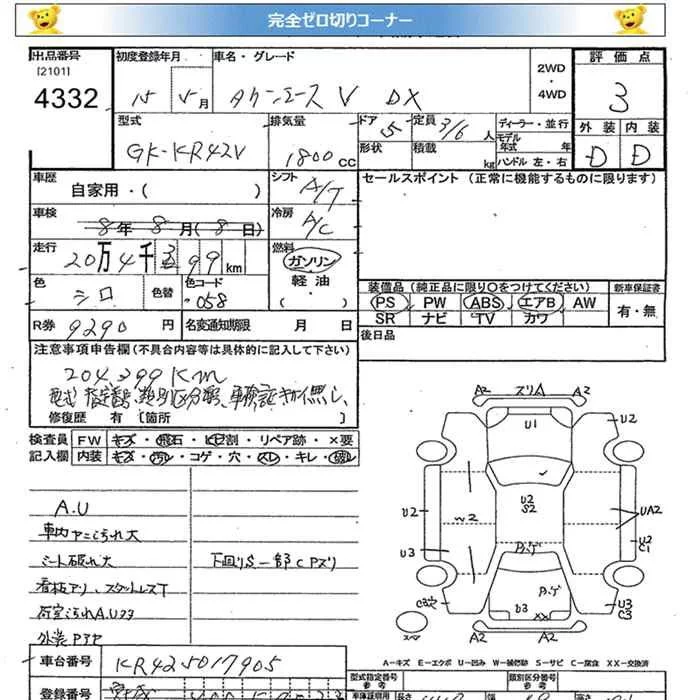 完全ゼロ切りコーナー
出品番号 初度登録年月 車名・グレード 2WD ・ 4WD 評価点
[2101]
4332 15 5月 タウンエース V DX 3
型式 排気量 ドア 5 定員 3/6人 ディーラー・並行 外装 内装
GK-KR42V 1800cc 形状 積載 kg モデル年式 年 D D
ハンドル 左・右
車歴 自家用・( ) シフト A/T セールスポイント (正常に機能するものに限ります)
車検 8年8月(8日) 冷房 A/C
走行 20万4千399km 燃料 ガソリン
軽油
・( )
色 シロ 色替 色コード 058
装備品 (純正品に限り○をつけてください) 新車保証書
PS PW ABS エアB AW 有・無
SR ナビ TV カワ
R券 9290円 名変通知期限 月 日 後日品
注意事項申告欄(不具合内容等は具体的に記入して下さい)
204,399Km
型式指定番号、類別区分番号、車検証キカイ無し、
修復歴 有 [箇所 ]
検査員 FW キズ・飛石・ヒビ割・リペア跡・×要
記入欄 内装 キズ・汚レ・コゲ・穴・スレ・キレ・破レ
A.U
車内ヤニ汚れ大
シート破れ大 下回りS、一部CPズリ
看板アリ、スタットレスT
荷室汚れA.Uヌタ
外装PアP
A2 スリA A2
U1
U2
U2 W2 U2 S2 UA2
U3 P.ゲ U2 C1
P.ゲ
C3穴 U3 C3
b3 XX
スペア A2 A2
A-キズ E-エクボ U-凹み W-補修跡 S-サビ C-腐食 XX-交換済
車台番号 KR42-5017905
登録番号
型式指定番号 参考
類別区分番号 参考
車庫証明用 長さ 幅 高さ